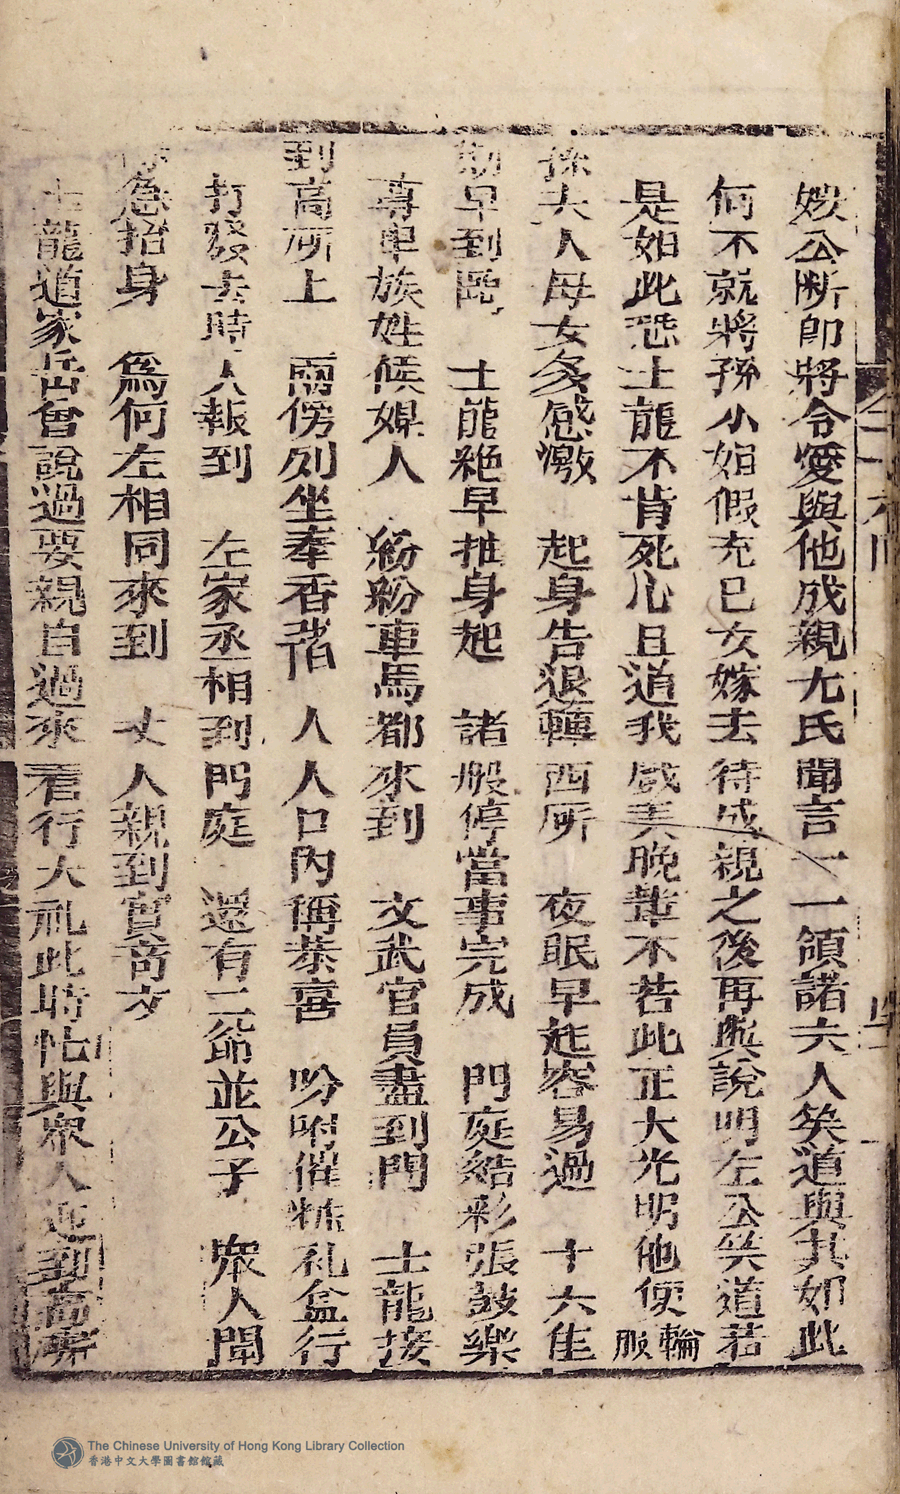 嫂公断即將令愛與他成親尤氏聞言一一領諾夫人笑道與其如此
何不就將孫小姐假充已女嫁去待成親之後再與說明左公笑道若
是如此恐士龍不肯死心且道我戲弄晚輩不若此正大光明他便輪服
孫夫人母女多感激 起身告退轉西所 夜眠早起容易過 十六佳
期早到臨 士龍絶早抽身起 諸般停當事完成 門庭結彩張鼓樂
尊卑族姓候媒人 紛紛車馬都來到 文武官員盡到門 士龍接
到高所上 兩傍列坐奉香茗 人人口內稱恭喜 吩咐催粧礼盒行
打發去時人報到 左家丞相到門庭 還有二爺並公子 衆人聞
急抬身 爲何左相同來到 丈人親到實奇文
士龍道家岳會說過要親自過來看行大礼此時忙與衆人迎到高所
The Chinese University of Hong Kong Library Collection
香港中文大學圖書館館藏